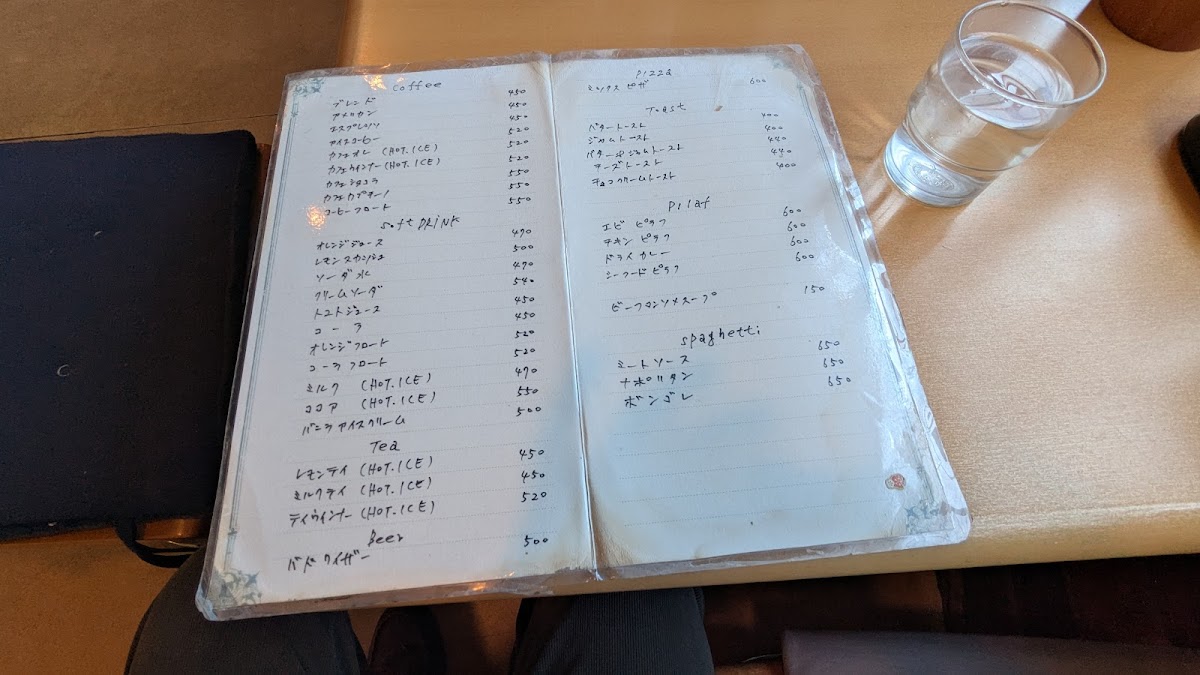 Coffee
ブレンド 450
アメリカン 450
エスプレッソ 450
アイスコーヒー 520
カフェオレ (HOT.ICE) 520
カフェウィンナー (HOT.ICE) 520
カフェショコラ 550
カフェカプチーノ 550
コーヒーフロート 550
Soft DRINK
オレンジジュース 470
レモンスカッシュ 500
ソーダ水 470
クリームソーダ 540
トマトジュース 450
コーラ 450
オレンジフロート 520
コーラフロート 520
ミルク (HOT.ICE) 470
ココア (HOT.ICE) 550
バニラアイスクリーム 500
Tea
レモンティ (HOT.ICE) 450
ミルクティ (HOT.ICE) 450
ティウィンナー (HOT.ICE) 520
Beer
バドワイザー 500
Pizza
ミックスピザ 600
Toast
バタートースト 400
ジャムトースト 400
バタージャムトースト 440
チーズトースト 440
チョコクリームトースト 400
Pilaf
エビピラフ 600
チキンピラフ 600
ドライカレー 600
シーフードピラフ 600
ビーフコンソメスープ 150
spaghetti
ミートソース 650
ナポリタン 650
ボンゴレ 650